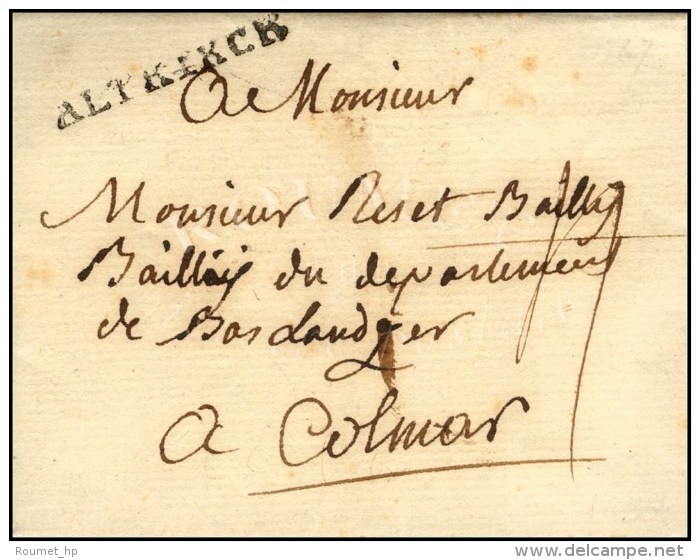 ALTKIRCK
A Monsieur
Monsieur Reset Bailly
Bailly du departement
de Bas Landser
A Colmar
Roumet_hp
www.delcampe.net